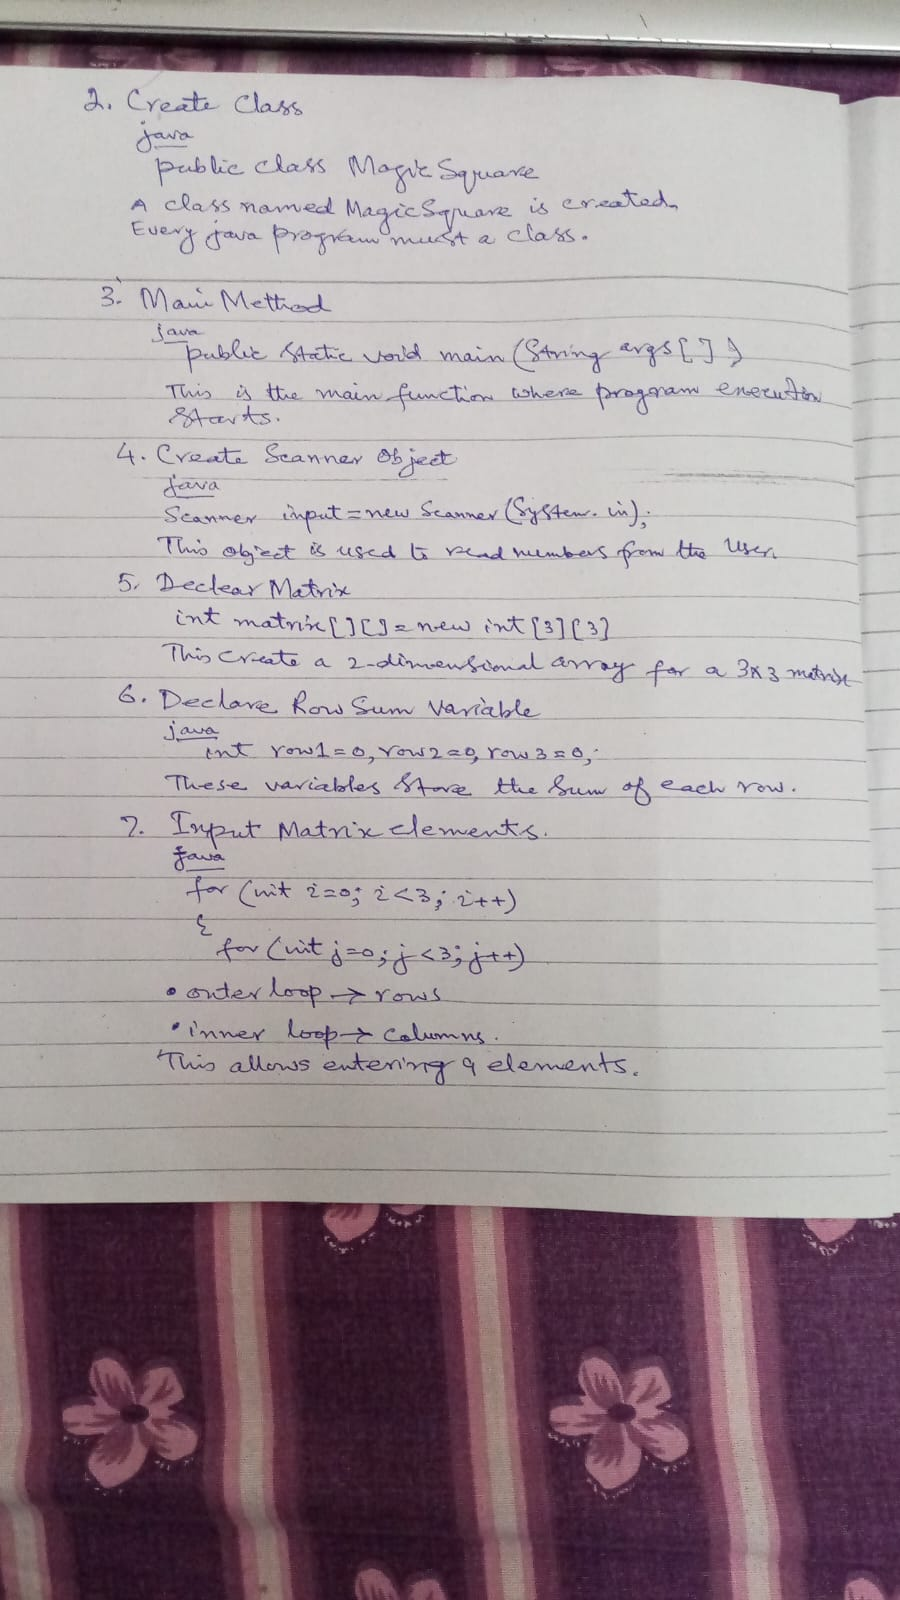 2. Create Class
java
public class MagicSquare
A class named MagicSquare is created.
Every java program must a class.
3. Main Method
java
public static void main (String args [ ] )
This is the main function where program execution
starts.
4. Create Scanner Object
java
Scanner input = new Scanner (System. in);
This object is used to read numbers from the User.
5. Declear Matrix
int matrix [ ] [ ] = new int [3] [3]
This Create a 2-dimensional array for a 3x3 matrix
6. Declare Row Sum Variable
java
int row1=0, row2=0, row3=0;
These variables Store the Sum of each row.
7. Input Matrix elements.
java
for (int i=0; i<3; i++)
{
for (int j=0; j<3; j++)
• outer loop → rows
• inner loop → columns.
This allows entering 9 elements.